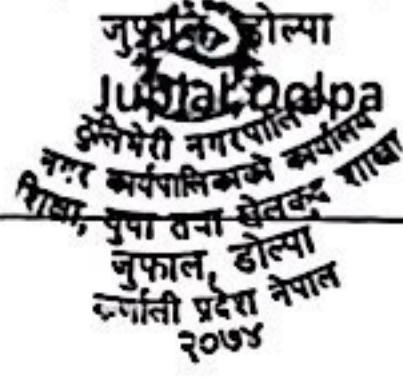 जुफाल, डोल्पा
Juphal, Dolpa
ठुलिभेरी नगरपालिका
नगर कार्यपालिकाको कार्यालय
शिक्षा, युवा तथा खेलकुद शाखा
जुफाल, डोल्पा
कर्णाली प्रदेश नेपाल
२०७४